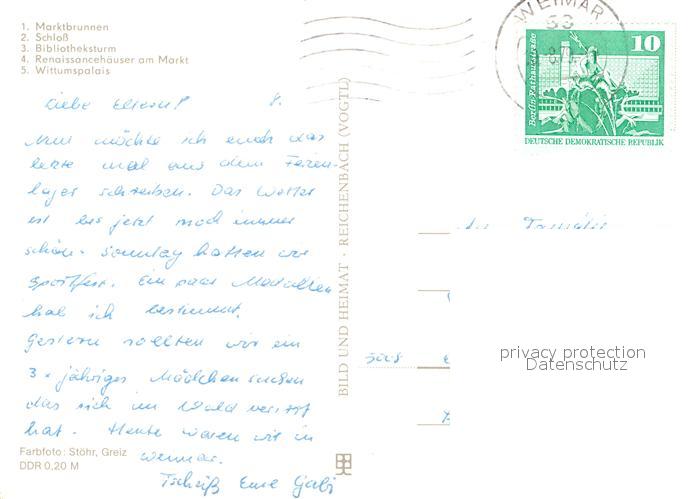 1. Marktbrunnen
2. Schloß
3. Bibliotheksturm
4. Renaissancehäuser am Markt
5. Wittumspalais
WEIMAR
53
10
Berlin-Rathausstraße
DEUTSCHE DEMOKRATISCHE REPUBLIK
Liebe Eltern! 8.
Nun möchte ich euch das
letzte mal aus dem Ferien-
lager schreiben. Das Wetter
ist bis jetzt noch immer
schön. Sonntag hatten wir
Sportfest. Ein paar Medaillen
hab ich bestimmt.
Gestern sollten wir ein
3 jähriges Mädchen suchen
das sich im Wald verirrt
hat. Heute waren wir in
Weimar.
Tschüß Eure Gabi
BILD UND HEIMAT · REICHENBACH (VOGTL)
An Familie
privacy protection
Datenschutz
Farbfoto: Stöhr, Greiz
DDR 0,20 M